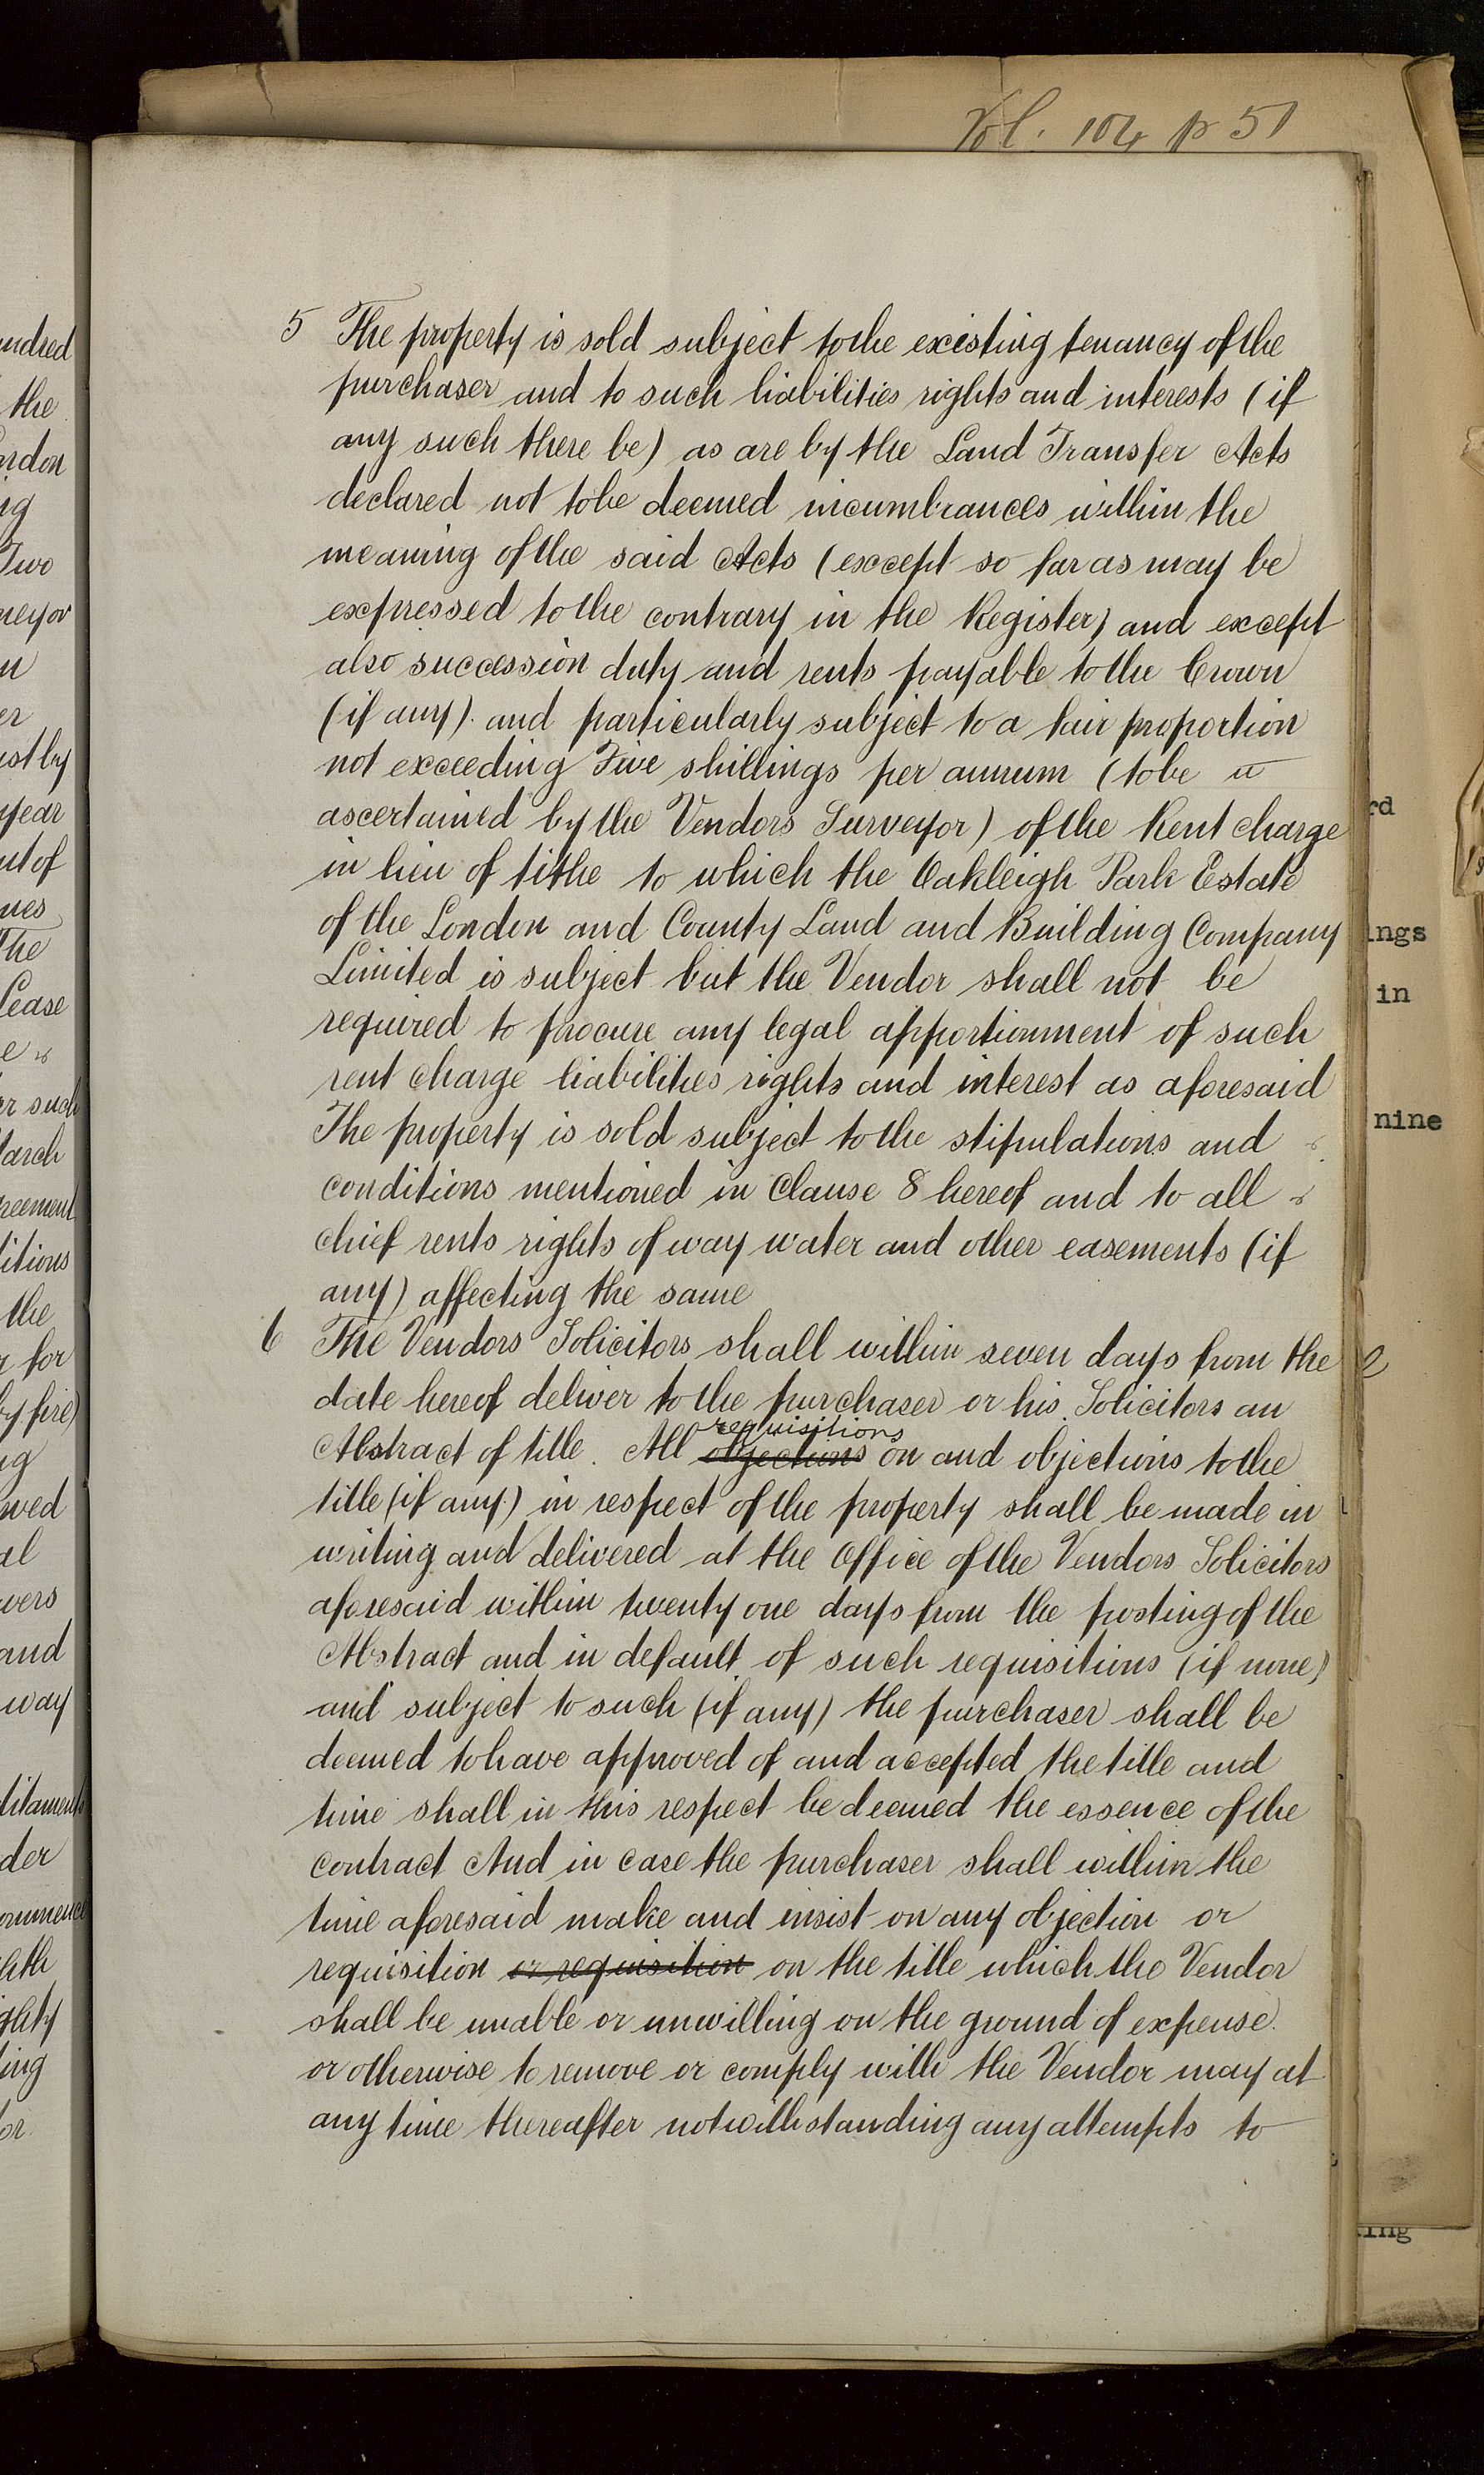 Vol. 104 p 51
5 The property is sold subject to the existing tenancy of the
purchaser and to such liabilities rights and interests (if
any such there be) as are by the Land Transfer Acts
declared not to be deemed incumbrances within the
meaning of the said Acts (except so far as may be
expressed to the contrary in the Register) and except
also succession duty and rents payable to the Crown
(if any). and particularly subject to a fair proportion
not exceeding Five shillings per annum (to be
ascertained by the Vendors Surveyor) of the Rent charge
in lieu of tithe to which the Oakleigh Park Estate
of the London and County Land and Building Company
Limited is subject but the Vendor shall not be
required to procure any legal apportionment of such
rent charge liabilities rights and interest as aforesaid
The property is sold subject to the stipulations and
conditions mentioned in Clause 8 hereof and to all
chief rents rights of way water and other easements (if
any) affecting the same
6 The Vendors Solicitors shall within seven days from the
date hereof deliver to the purchaser or his Solicitors an
requisitions
Abstract of title. All objections on and objections to the
title (if any) in respect of the property shall be made in
writing and delivered at the Office of the Vendors Solicitors
aforesaid within twenty one days from the posting of the
Abstract and in default of such requisitions (if none)
and subject to such (if any) the purchaser shall be
deemed to have approved of and accepted the title and
time shall in this respect be deemed the essence of the
contract And in case the purchaser shall within the
time aforesaid make and insist on any objection or
requisition or requisition on the title which the Vendor
shall be unable or unwilling on the ground of expense
or otherwise to remove or comply with the Vendor may at
any time thereafter notwithstanding any attempts to
rd
ings
in
nine
ing
the
Two
year
The
Lease
the
and
way